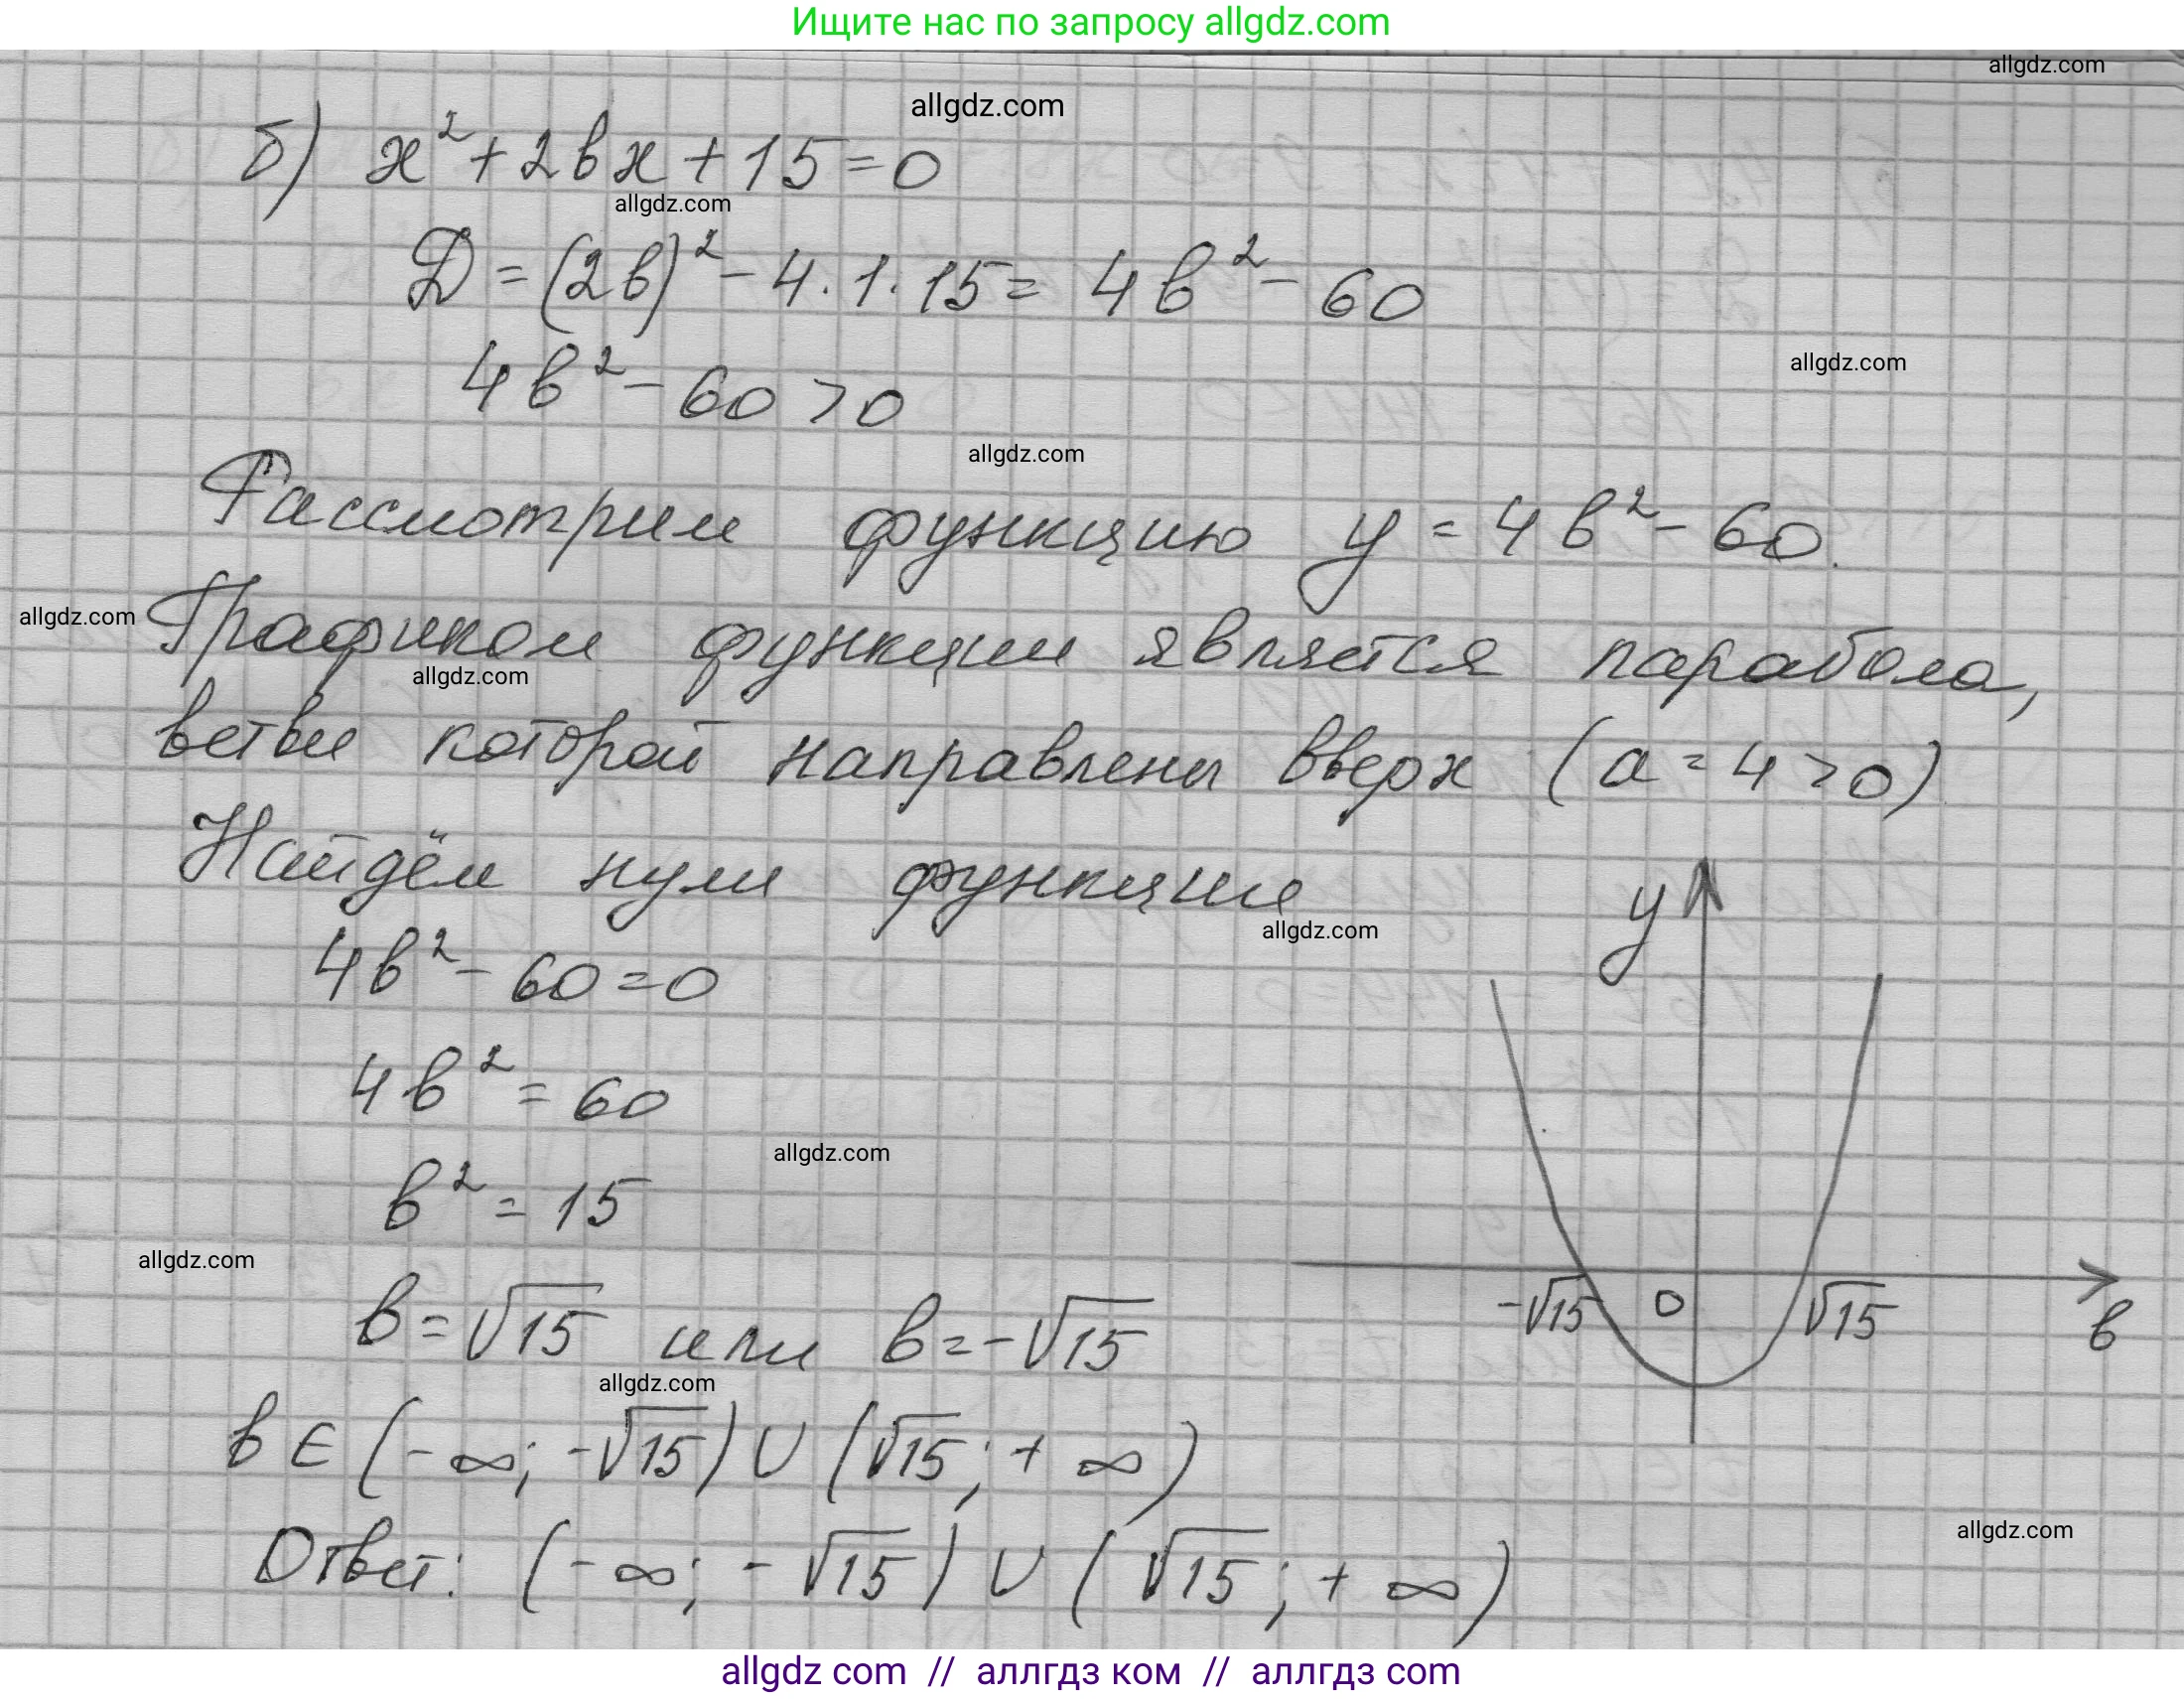 Ищите нас по запросу allgdz.com
allgdz.com
allgdz.com
б) x² + 2вx + 15 = 0
allgdz.com
Д = (2в)² - 4 · 1 · 15 = 4в² - 60
allgdz.com
4в² - 60 > 0
allgdz.com
Рассмотрим функцию y = 4в² - 60.
allgdz.com
Графиком функции является парабола,
allgdz.com
ветви которой направлены вверх (a = 4 > 0)
Найдём нули функции
allgdz.com
y
4в² - 60 = 0
4в² = 60
allgdz.com
в² = 15
allgdz.com
-√15 0 √15 в
в = √15 или в = -√15
allgdz.com
в ∈ (-∞; -√15) ∪ (√15; +∞)
allgdz.com
Ответ: (-∞; -√15) ∪ (√15; +∞)
allgdz com // аллгдз ком // аллгдз com